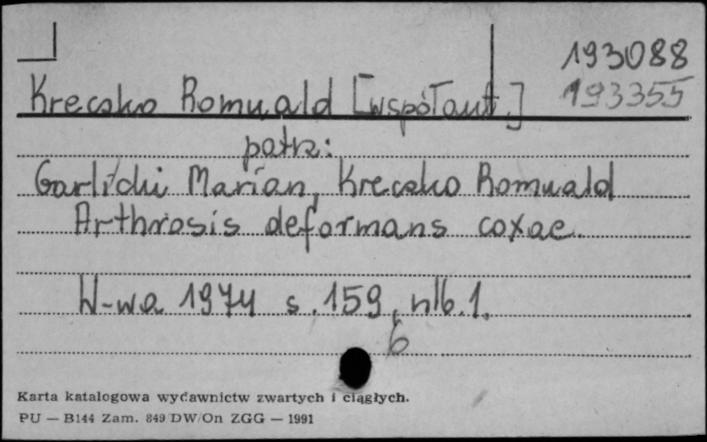 193088
Kreczko Romuald [współaut.]
193355
patrz:
Garlicki Marian, Kreczko Romuald
Arthrosis deformans coxae.
W-wa 1974 s. 159, nlb. 1.
6
Karta katalogowa wydawnictw zwartych i ciągłych.
PU — B144 Zam. 849 DW/On ZGG — 1991